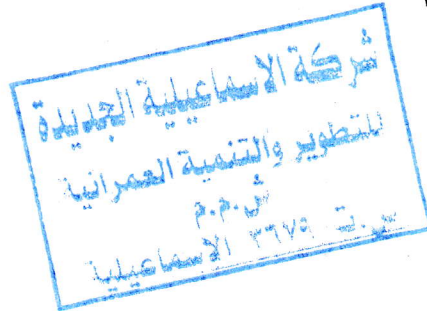 شركة الاسماعيلية الجديدة
للتطوير والتنمية العمرانية
ش.م.م
س.ت ٣٦٧٩ الاسماعيلية